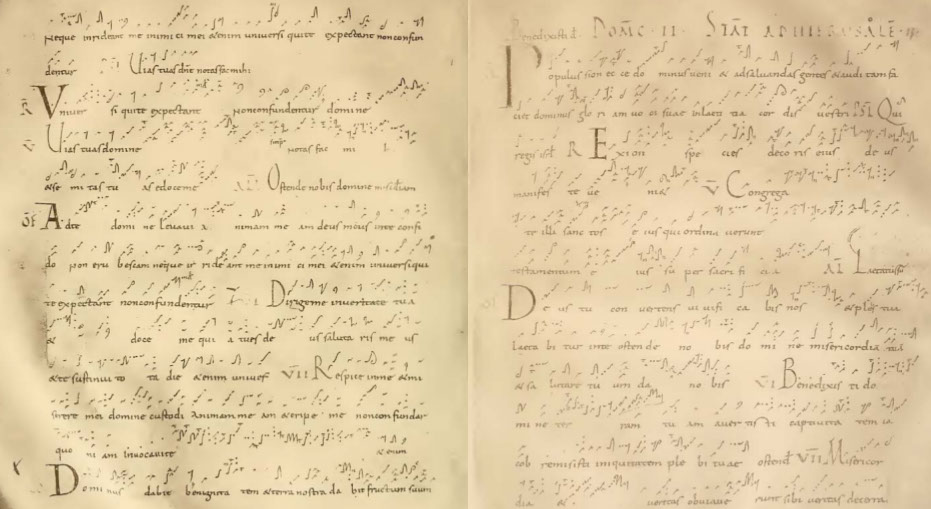 Neque inrideant me inimici mei &enim universi qui te expectant nonconfun
dentur Uias tuas dne notas fac mihi
V niver si qui te expectant Nonconfundentur domine
Uias tuas domine notas fac mi
&se mi tas tu as edoce me Ostende nobis domine misdiam
A dte domi ne levavi a nimam me am deus meus inte confi
do non eru bescam neque ir ride ant me inimi ci mei &enim universi qui
te expectant nonconfundentur Dirigeme inveritate tua
& doce me qui a tu es de us saluta ris me us
&te sustinui to ta die &enim univers VII Respice inme &mi
serere mei domine custodi Animam me am &eripe me nonconfundar
quo ni am invocavi te &enim
Domi nus dabit benignita tem &terra nostra da bit fructum suum
DOMC II STAT AD HIERUSALE
Populus sion ec ce do minus veni & adsaluandas gentes &auditam fa
ci& dominus glo ri am vo cis suae in laeti tia cor dis vestri Qui
regis isrl R Exion spe cies deco ris eius de us
manifes te ve ni& V Congrega
te illi sanc tos e ius qui ordina verunt
testamentum e ius su per sacri fi ci a AL Laetatus su
De us tu con vertens vi vifi ca bis nos &plebs tua
laeta bi tur inte osten de no bis do mi ne misericordia tua
&sa lutare tu um da no bis VI Benedixis ti do
mi ne ter ram tu am aver tis ti captivita tem ia
cob remisisti iniquitatem ple bi tuae ostend VII Misericor
dia & veritas obviave runt sibi veritas de terra